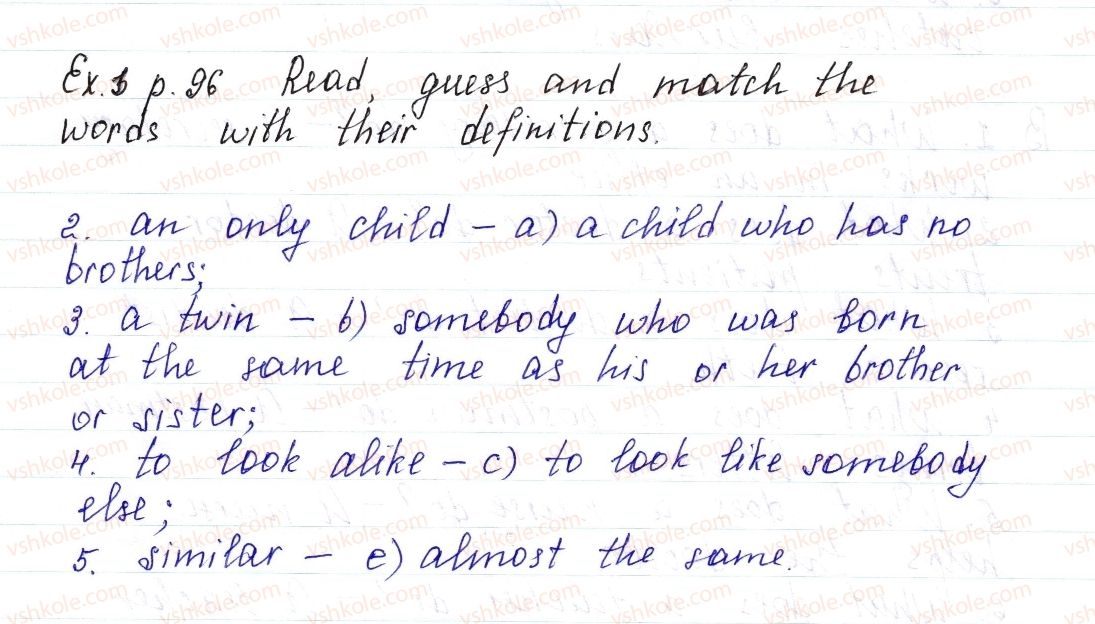 Ex.1 p.96 Read, guess and match the
words with their definitions.
2. an only child – a) a child who has no
brothers;
3. a twin – b) somebody who was born
at the same time as his or her brother
or sister;
4. to look alike – c) to look like somebody
else;
5. similar – e) almost the same.